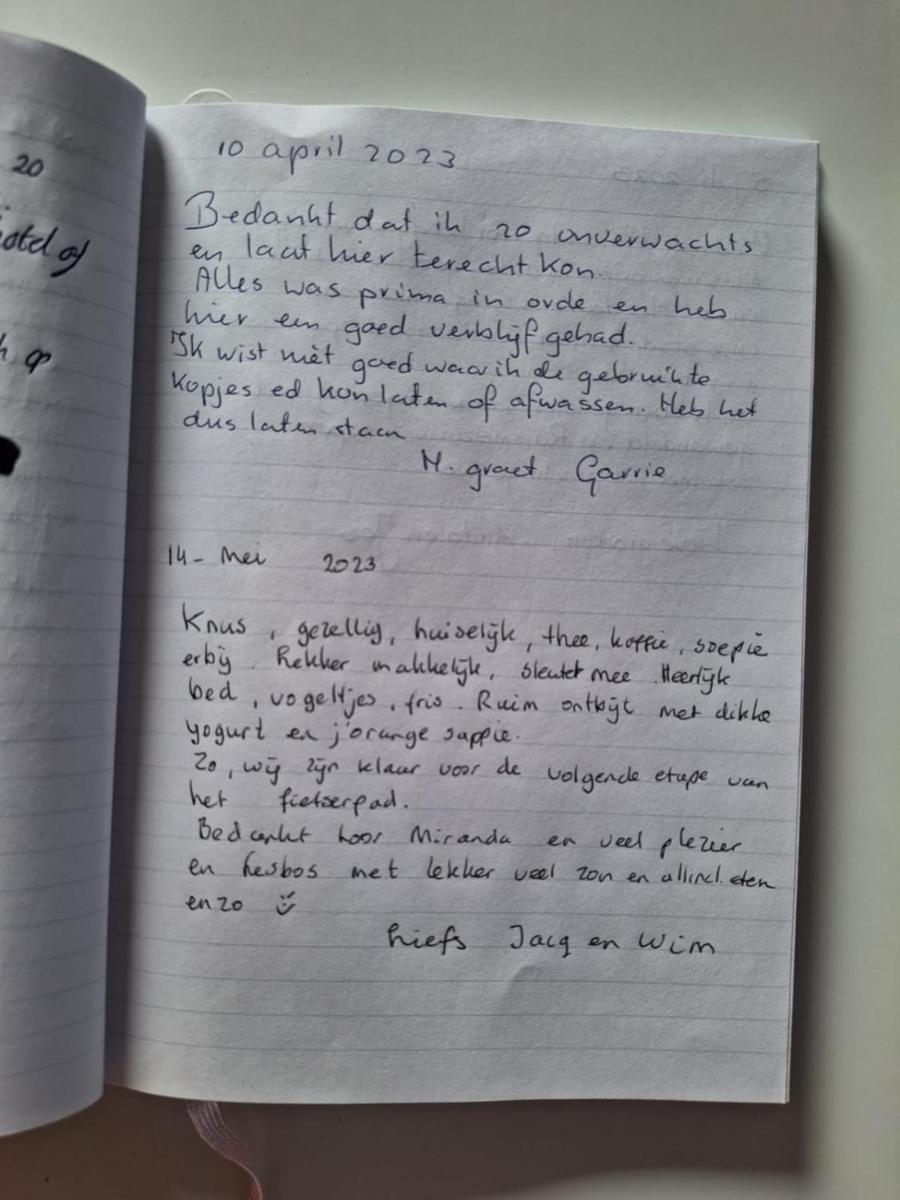 20
istel of
op
10 april 2023
Bedankt dat ik zo onverwachts
en laat hier terecht kon.
Alles was prima in orde en heb
hier een goed verblijf gehad.
Ik wist niet goed waar ik de gebruikte
kopjes ed kon laten of afwassen. Heb het
dus laten staan
M. groet Garrie
14 - Mei 2023
Knus, gezellig, huiselijk, thee, koffie, soepie
erbij. Lekker makkelijk, sleutel mee. Heerlijk
bed, vogeltjes, fris. Ruim ontbijt met dikke
yogurt en j'orange sappie.
Zo, wij zijn klaar voor de volgende etape van
het fietserpad.
Bedankt hoor Miranda en veel plezier
en Lesbos met lekker veel zon en allincl. eten
en zo
Liefs Jacq en Wim